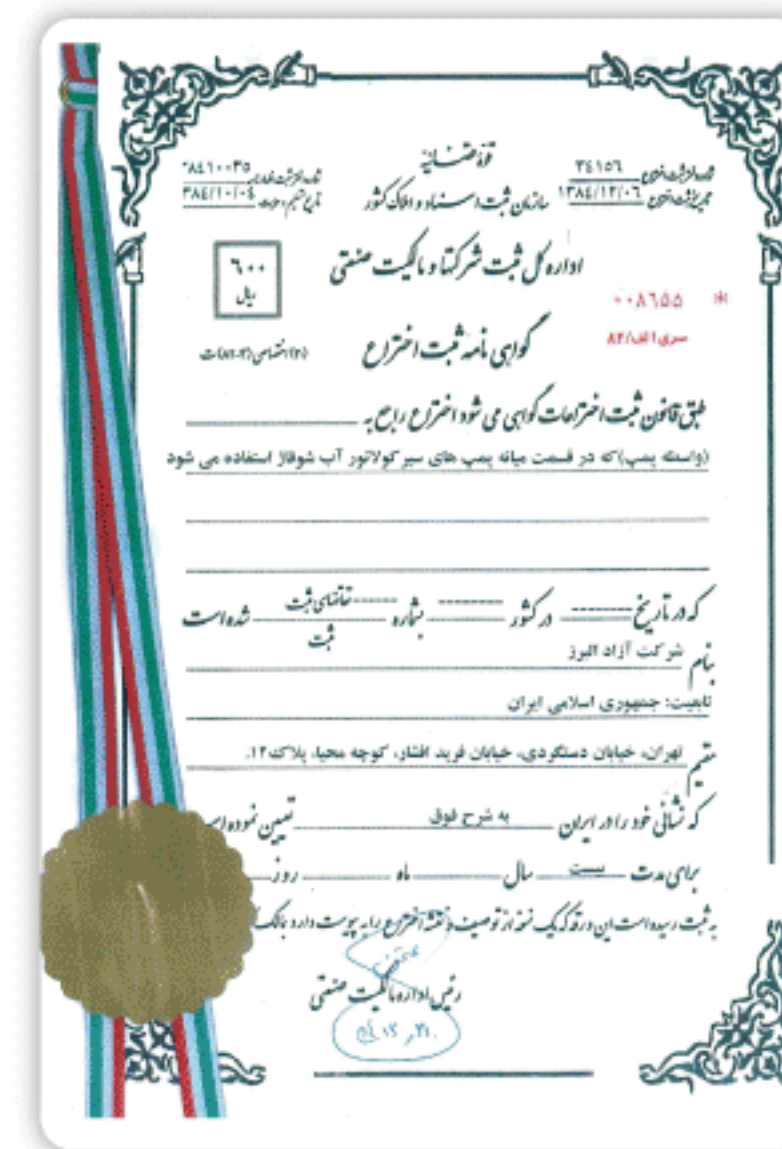 قوه قضائیه
شماره ثبت اختراع ۳۴۱۵۶
تاریخ ثبت اختراع ۱۳۸۴/۱۲/۰۶
سازمان ثبت اسناد و املاک کشور
۳۸۴۱۰۰۳۵
۳۸۴/۱۰/۰۴
اداره کل ثبت شرکتها و مالکیت صنعتی
۶۰۰
ریال
* ۰۰۸۶۵۵
سری الف/۸۲
گواهی نامه ثبت اختراع
طبق قانون ثبت اختراعات گواهی می شود اختراع راجع به
(واسطه پمپ)که در قسمت میانه پمپ های سیرکولاتور آب شوفاژ استفاده می شود
که در تاریخ -------- در کشور -------- بشماره -------- تقاضای ثبت
ثبت شده است
بنام شرکت آزاد البرز
تابعیت: جمهوری اسلامی ایران
مقیم تهران، خیابان دستگردی، خیابان فرید افشار، کوچه محیا، پلاک ۱۲.
که نشانی خود را در ایران به شرح فوق تعیین نموده
برای مدت بیست سال ماه روز
به ثبت رسیده است این ورقه که یک نسخه از توصیف و نقشه اختراع را به پیوست دارد
رئیس اداره مالکیت صنعتی